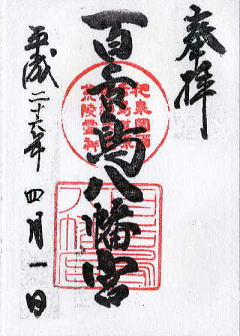 奉拝
百舌鳥八幡宮
平成二十六年四月一日